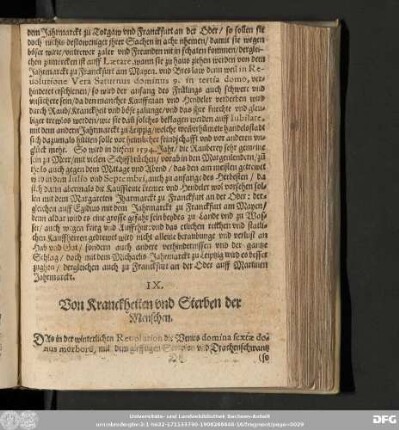 dem Jahrmarckt zu Torgaw vnd Franckfurt an der Oder/ so sollen sie
doch nichts destoweniger jhrer Sachen in acht nhemen/ damit sie wegen
böser wäre/ vntrewer zaler vnd Freunden nit in schaden kommen/ dergleichen
zumercken ist auff Lætare, wann sie zu hauß ziehen werden von dem
Jahrmarckt zu Franckfurt am Mayen, vnd Breslaw dann weil in Re-
uolutione Vera Saturnus dominus 9. in tertia domo, ver-
hinderet erschienen/ so wird der anfang des Frülings auch schwere vnd
vnsichere sein/ da den mancher Kauffman vnd Hendeler verderben wird
durch Raub/ Kranckheit vnd böse zalunge/ vnd das jhre furchte vnd gleu-
biger treulos werden/ wie sie dan solches beklagen werden auff Iubilate,
mit dem andern Jahrmarckt zu Leipzig/ welche weil
sich da zumals hüten solle vor heimlicher feindschafft vnd vor anderen vn-
glück mehr. So wird in diesem 1594. Jahr/ die Rauberey sehr gemeine
sein zu Meer/ mit vielen Schiffbrüchen/ vorab in den Morgenlendern/
auch gegen dem Mittage vnd Abend/ das den am meisten getrewet
wird in dem Iulio vnd September, auch zu anfange des Herbsten/ da
sich dann abermals die Kauffleute kremer vnd Hendeler wol vorsehen sol-
len mit dem Margareten Jharmarckt zu Franckfurt an der Oder: der-
gleichen auff Egidius mit dem Jahrmarckt zu Franckfurt am Mayen/
denn aldar wird es eine grosse gefahr sein beides zu Lande vnd zu Was-
ser/ auch wegen krieg vnd Auffrhur: vnd das etlichen reichen vnd statli-
chen Kauffherren gedrewet wird nicht alleine beraubunge vnd verlust an
Hab vnd Gut/ sondern auch andere verhindernissen vnd der gantze
Schlag/ doch mit dem Michaelis Jahrmarckt zu Leipzig wird es besser
zugehn/ dergleichen auch zu Franckfurt an der Oder auff Martineri
Jahrmarckt.
IX.
Von Kranckheiten vnd Sterben der
Menschen.
DAs in der winterlichen Reuolution die Venus domina sextæ do-
mus morborū, mit dem gifftigen vnd Drachenschwantz
(so
Universitäts- und Landesbibliothek Sachsen-Anhalt
DFG